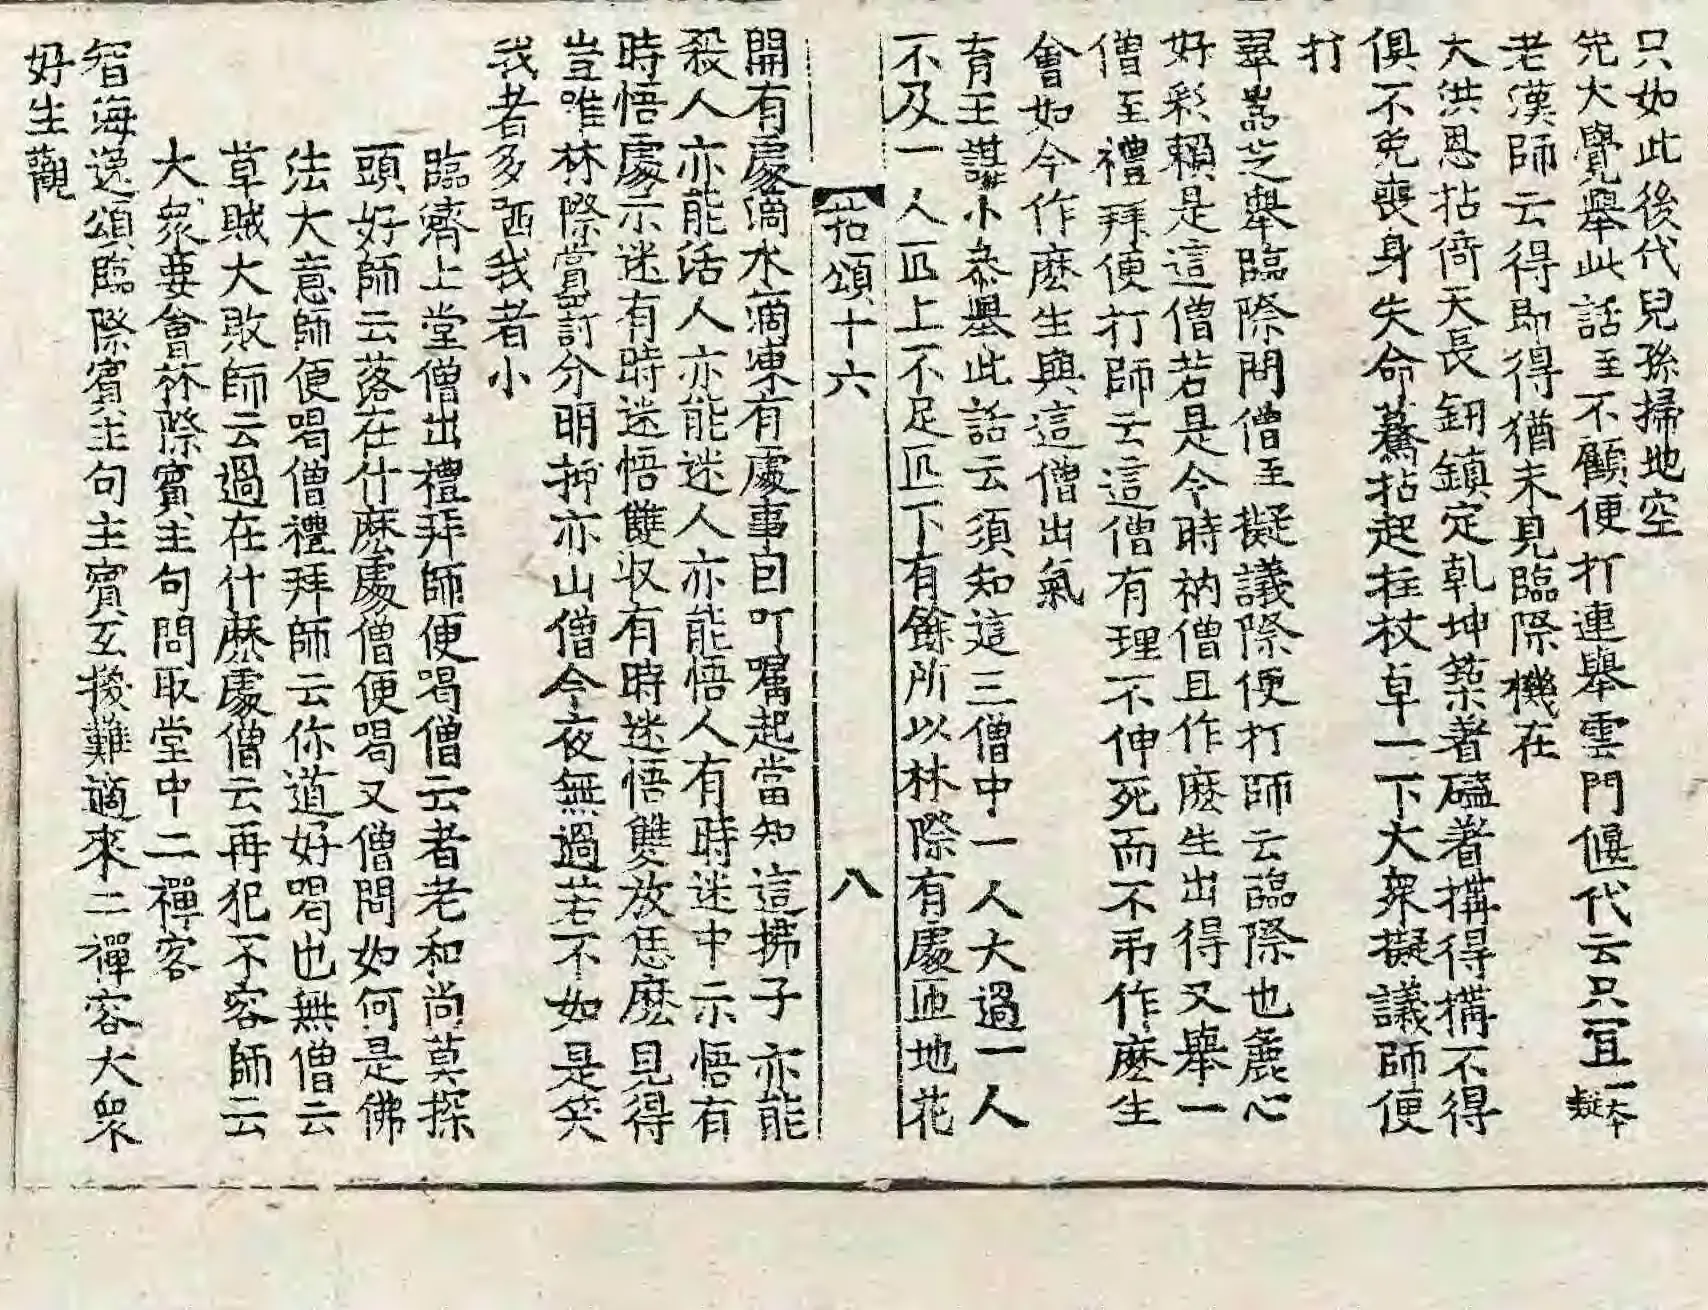 只如此後代兒孫掃地空
先大覺舉此話至不顧便打連舉雲門偃代云只冝一本擬
老漢師云得即得猶未見臨際機在
大洪恩拈倚天長釰鎮定乹坤築著磕著搆得搆不得
俱不免喪身失命驀拈起拄杖卓一下大衆擬議師便
打
翠嵓芝舉臨際問僧至擬議際便打師云臨際也麁心
好彩賴是這僧若是今時衲僧且作麽生出得又舉一
僧至禮拜便打師云這僧有理不伸死而不弔作麽生
會如今作麽生與這僧出氣
育王諶小叅舉此話云須知這三僧中一人大過一人
不及一人匹上不足匹下有餘所以林際有處匝地花
拈頌十六 八
開有處滴水滴凍有處事囙叮嘱起當知這拂子亦能
殺人亦能活人亦能迷人亦能悟人有時迷中示悟有
時悟處示迷有時迷悟雙收有時迷悟雙放恁麽見得
豈唯林際當㝵訂分明抑亦山僧今夜無過若不如是笑
我者多哂我者小
臨濟上堂僧出禮拜師便喝僧云者老和尚莫探
頭好師云落在什麽處僧便喝又僧問如何是佛
法大意師便喝僧禮拜師云你道好喝也無僧云
草賊大敗師云過在什麽處僧云再犯不容師云
大衆要會林際賓主句問取堂中二禪客
智海逸頌臨際賓主句主賓互換難適來二禪客大衆
好生觀